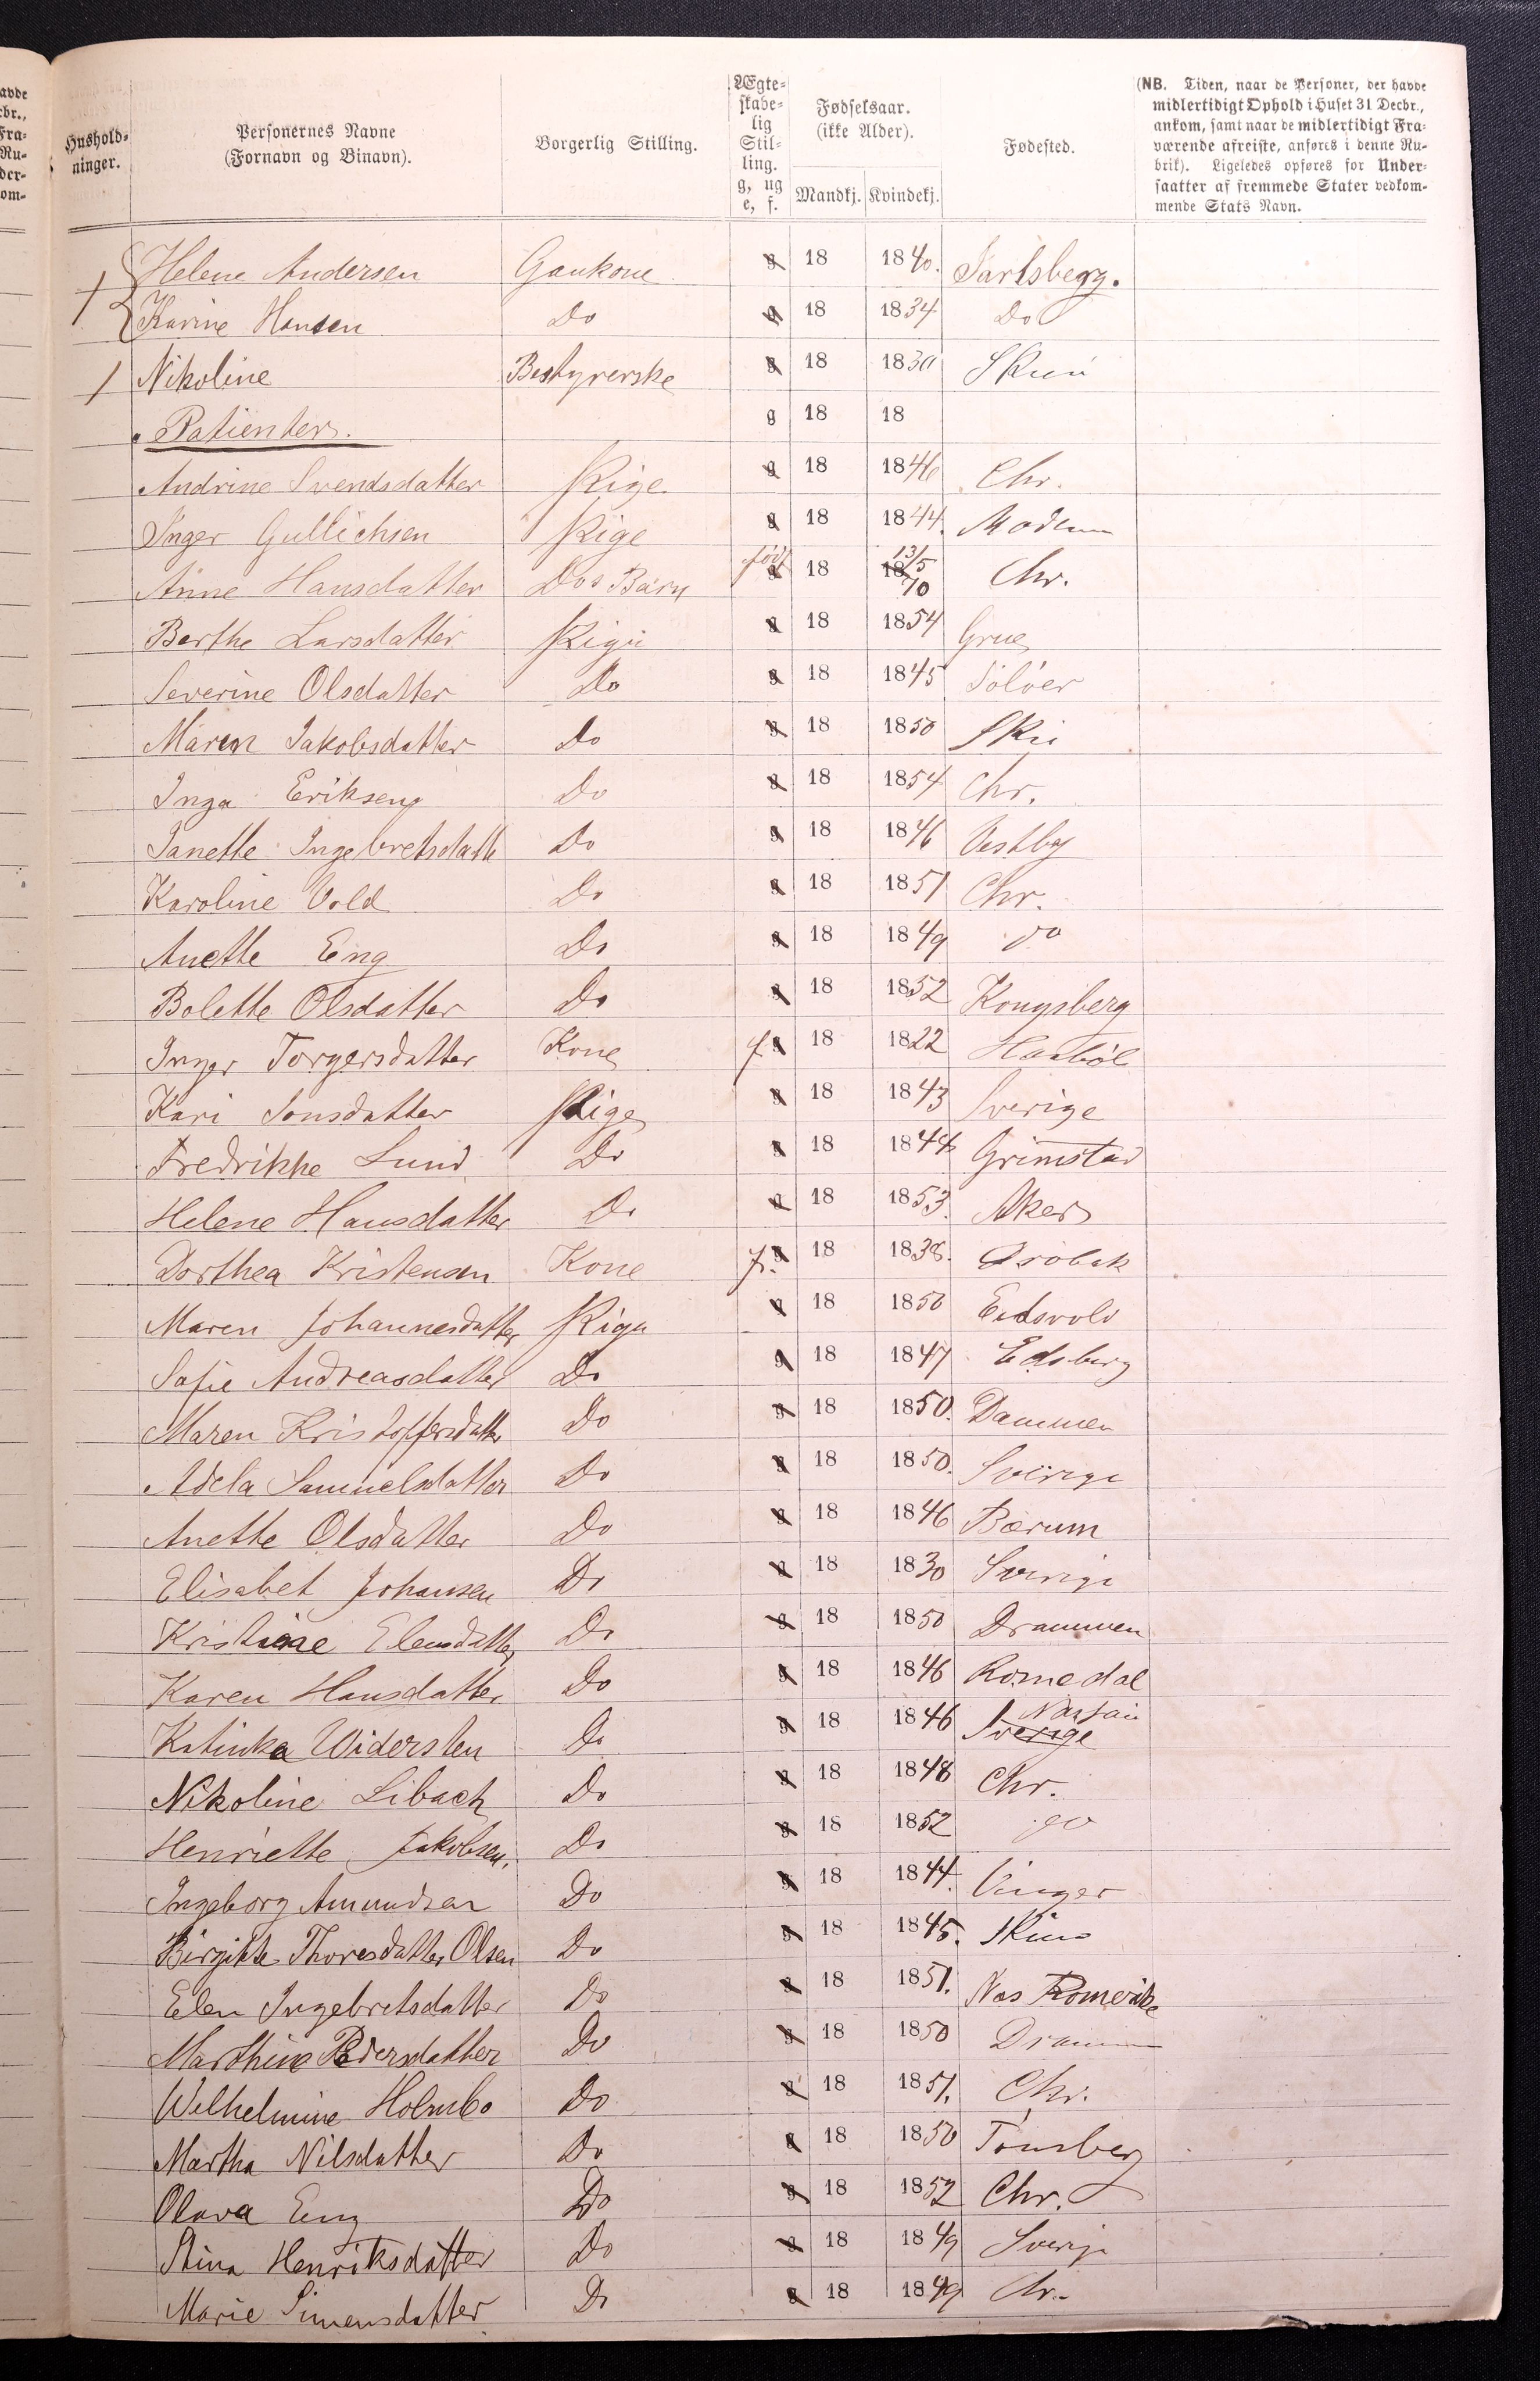 Hushold-
ninger.
Personernes Navne
(Fornavn og Binavn).
Borgerlig Stilling.
Ægte-
skabe-
lig
Stil-
ling.
g, ug
e, f.
Fødselsaar.
(ikke Alder).
Mandkj. Kvindekj.
Fødested.
(NB. Tiden, naar de Personer, der havde
midlertidigt Ophold i Huset 31 Decbr.,
ankom, samt naar de midlertidigt Fra-
værende afreiste, anføres i denne Ru-
brik). Ligeledes opføres for Under-
saatter af fremmede Stater vedkom-
mende Stats Navn.
Helene Andersen Gankone g 18 1840. Jarlsberg.
Karine Hansen Do g 18 1834 Do
1 Nikoline Bestyrerske g 18 1830
Patienter. g 18 18
Andrine Svendsdatter Pige g 18 1846 Chr.
Inger Gullichsen Pige g 18 1844. Modum
Anne Hansdatter Dos Barn født g 18 18 13/5 70 Chr.
Berthe Larsdatter Pige g 18 1854 Grue
Severine Olsdatter Do g 18 1845 Solöer
Maren Jakobsdatter Do g 18 1850 Ski
Inga Eriksen Do g 18 1854 Chr.
Janette Ingebretsdatt Do g 18 1846 Vestby
Karoline Vold Do g 18 1851 Chr.
Anette Eng Do g 18 1849 do
Bolette Olsdatter Do g 18 1852 Kongsberg
Inger Torgersdatter Kone f g 18 1822 Haaböl
Kari Jonsdatter Pige g 18 1843 Sverige
Fredrikke Lund Do g 18 1844 Grimstad
Helene Hansdatter Do g 18 1853. Aker
Dorthea Kristensen Kone f. g 18 1838. Dröbak
Maren Johannesdatter Pige g 18 1850 Eidsvold
Sofie Andreasdatter Do g 18 1847 Edsberg
Maren Kristoffersdatter Do g 18 1850. Dammen
Adela Samuelsdatter Do g 18 1850. Sverige
Anette Olsdatter Do g 18 1846 Bærum
Elisabet Johansen Do g 18 1830 Sverige
Kristiane Elensdatter Do g 18 1850 Drammen
Karen Hansdatter Do g 18 1846 Romedal
Katinka Widersten Do g 18 1846 Sverige
Nikoline Libach Do g 18 1848 Chr.
Henriette Jakobsen. Do g 18 1852 do
Ingeborg Amundsen Do g 18 1844. Vinger
Birgitte Thoresdatter Olsen Do g 18 1845.
Elen Ingebretsdatter Do g 18 1851. Nes Romerike
Marthine Pedersdatter Do g 18 1850 Dramm
Wilhelmine Holmbo Do g 18 1851. Chr.
Martha Nilsdatter Do g 18 1850 Tönsberg
Olava Eng Do g 18 1852 Chr.
Stina Henriksdatter Do g 18 1849 Sverige
Marie Simensdatter Do g 18 1849 Chr.